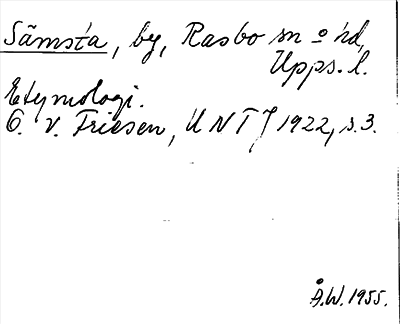 Sämsta, by, Rasbo sn o hd,
Upps. l.
Etymologi.
O. v. Friesen, UNTJ 1922, s. 3.
Å.W. 1955.